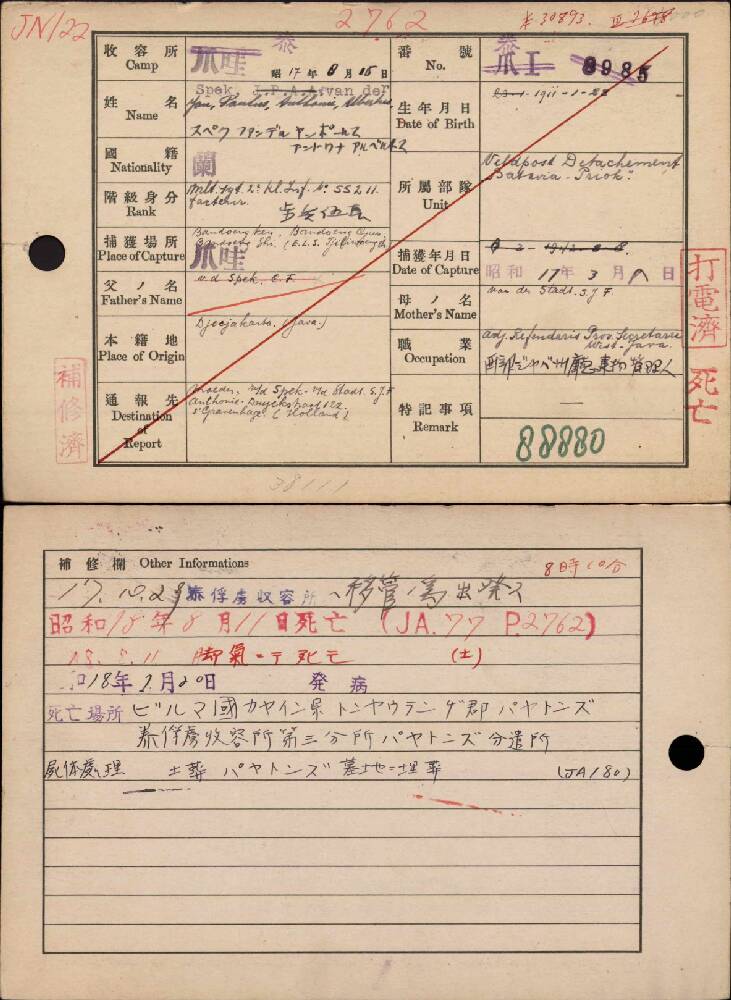 JN122
2762
30893.
収容所
Camp
泰
爪哇
昭17年8月15日
番號
No.
泰
爪I 8985
姓名
Name
Spek, J.P.A.A. van der
Jan, Paulus, Anthonie, Albertus
スペク フアンデル ヤンポールス
アントワナ アルベルトス
生年月日
Date of Birth
1911-1-
國籍
Nationality
蘭
階級身分
Rank
Inf. No 55211
歩兵伍長
所屬部隊
Unit
Veldpost Detachement
Batavia-Priok.
捕獲場所
Place of Capture
爪哇
捕獲年月日
Date of Capture
昭和17年3月8日
父ノ名
Father's Name
v.d Spek. C.F.
母ノ名
Mother's Name
van der Stadt. S.J.F.
本籍地
Place of Origin
Djocjakarta. (Java.)
職業
Occupation
Adj. Referendaris Prov. Secretarie
West-Java.
通報先
Destination of Report
Moeder. v/d Spek-v/d Stadt. S.J.F
Anthonie-Duyckstraat 122
's Gravenhage. (Holland)
特記事項
Remark
88880
補修濟
打電濟
死亡
38111
補修欄 Other Informations
8時10分
17.10.29泰俘虜収容所ヘ移管ノ為出発ス
昭和18年8月11日死亡 (JA.77 P.2762)
脚氣ニテ死亡 (土)
18年7月20日 発病
死亡場所 ビルマ國カヤイン県トンヤウテンゲ郡パヤトンズ
泰俘虜収容所第三分所パヤトンズ分遣所
屍体處理 土葬 パヤトンズ墓地ニ埋葬 (JA180)